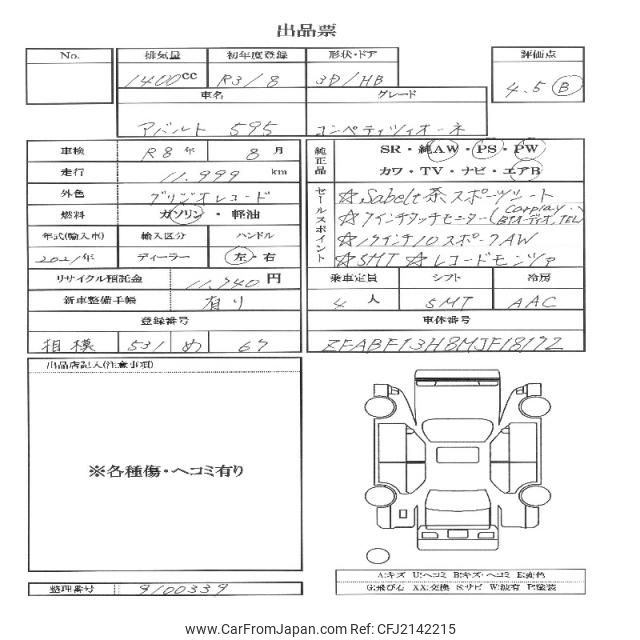 出品票
No.
排気量 初年度登録 形状・ドア 評価点
1400cc R3/8 3D/HB 4.5 B
車名 グレード
アバルト 595 コンペティツィオーネ
車検 R8年 8月
走行 11,999 km
外色
燃料 ガソリン・軽油
年式(輸入車) 輸入区分 ハンドル
2021年 ディーラー 左・右
リサイクル預託金 11,740円
新車整備手帳 有り
登録番号
相模 531 め 67
純正品 SR・純AW・PS・PW
カワ・TV・ナビ・エアB
セールスポイント
☆Sabelt茶スポーツシート
☆7インチタッチモニター(Carplay, BTオーディオ,TEL)
☆17インチ10スポークAW
☆5MT ☆レコードモンツァ
乗車定員 シフト 冷房
4人 5MT AAC
車体番号
ZFABF13H8MJF18172
出品店記入(注意事項)
※各種傷・ヘコミ有り
整理番号 9100339
A:キズ U:ヘコミ B:キズ・ヘコミ E:変色
G:飛び石 XX:交換 S:サビ W:波有 P:塗装
CarFromJapan.com - Ref CFJ2142215